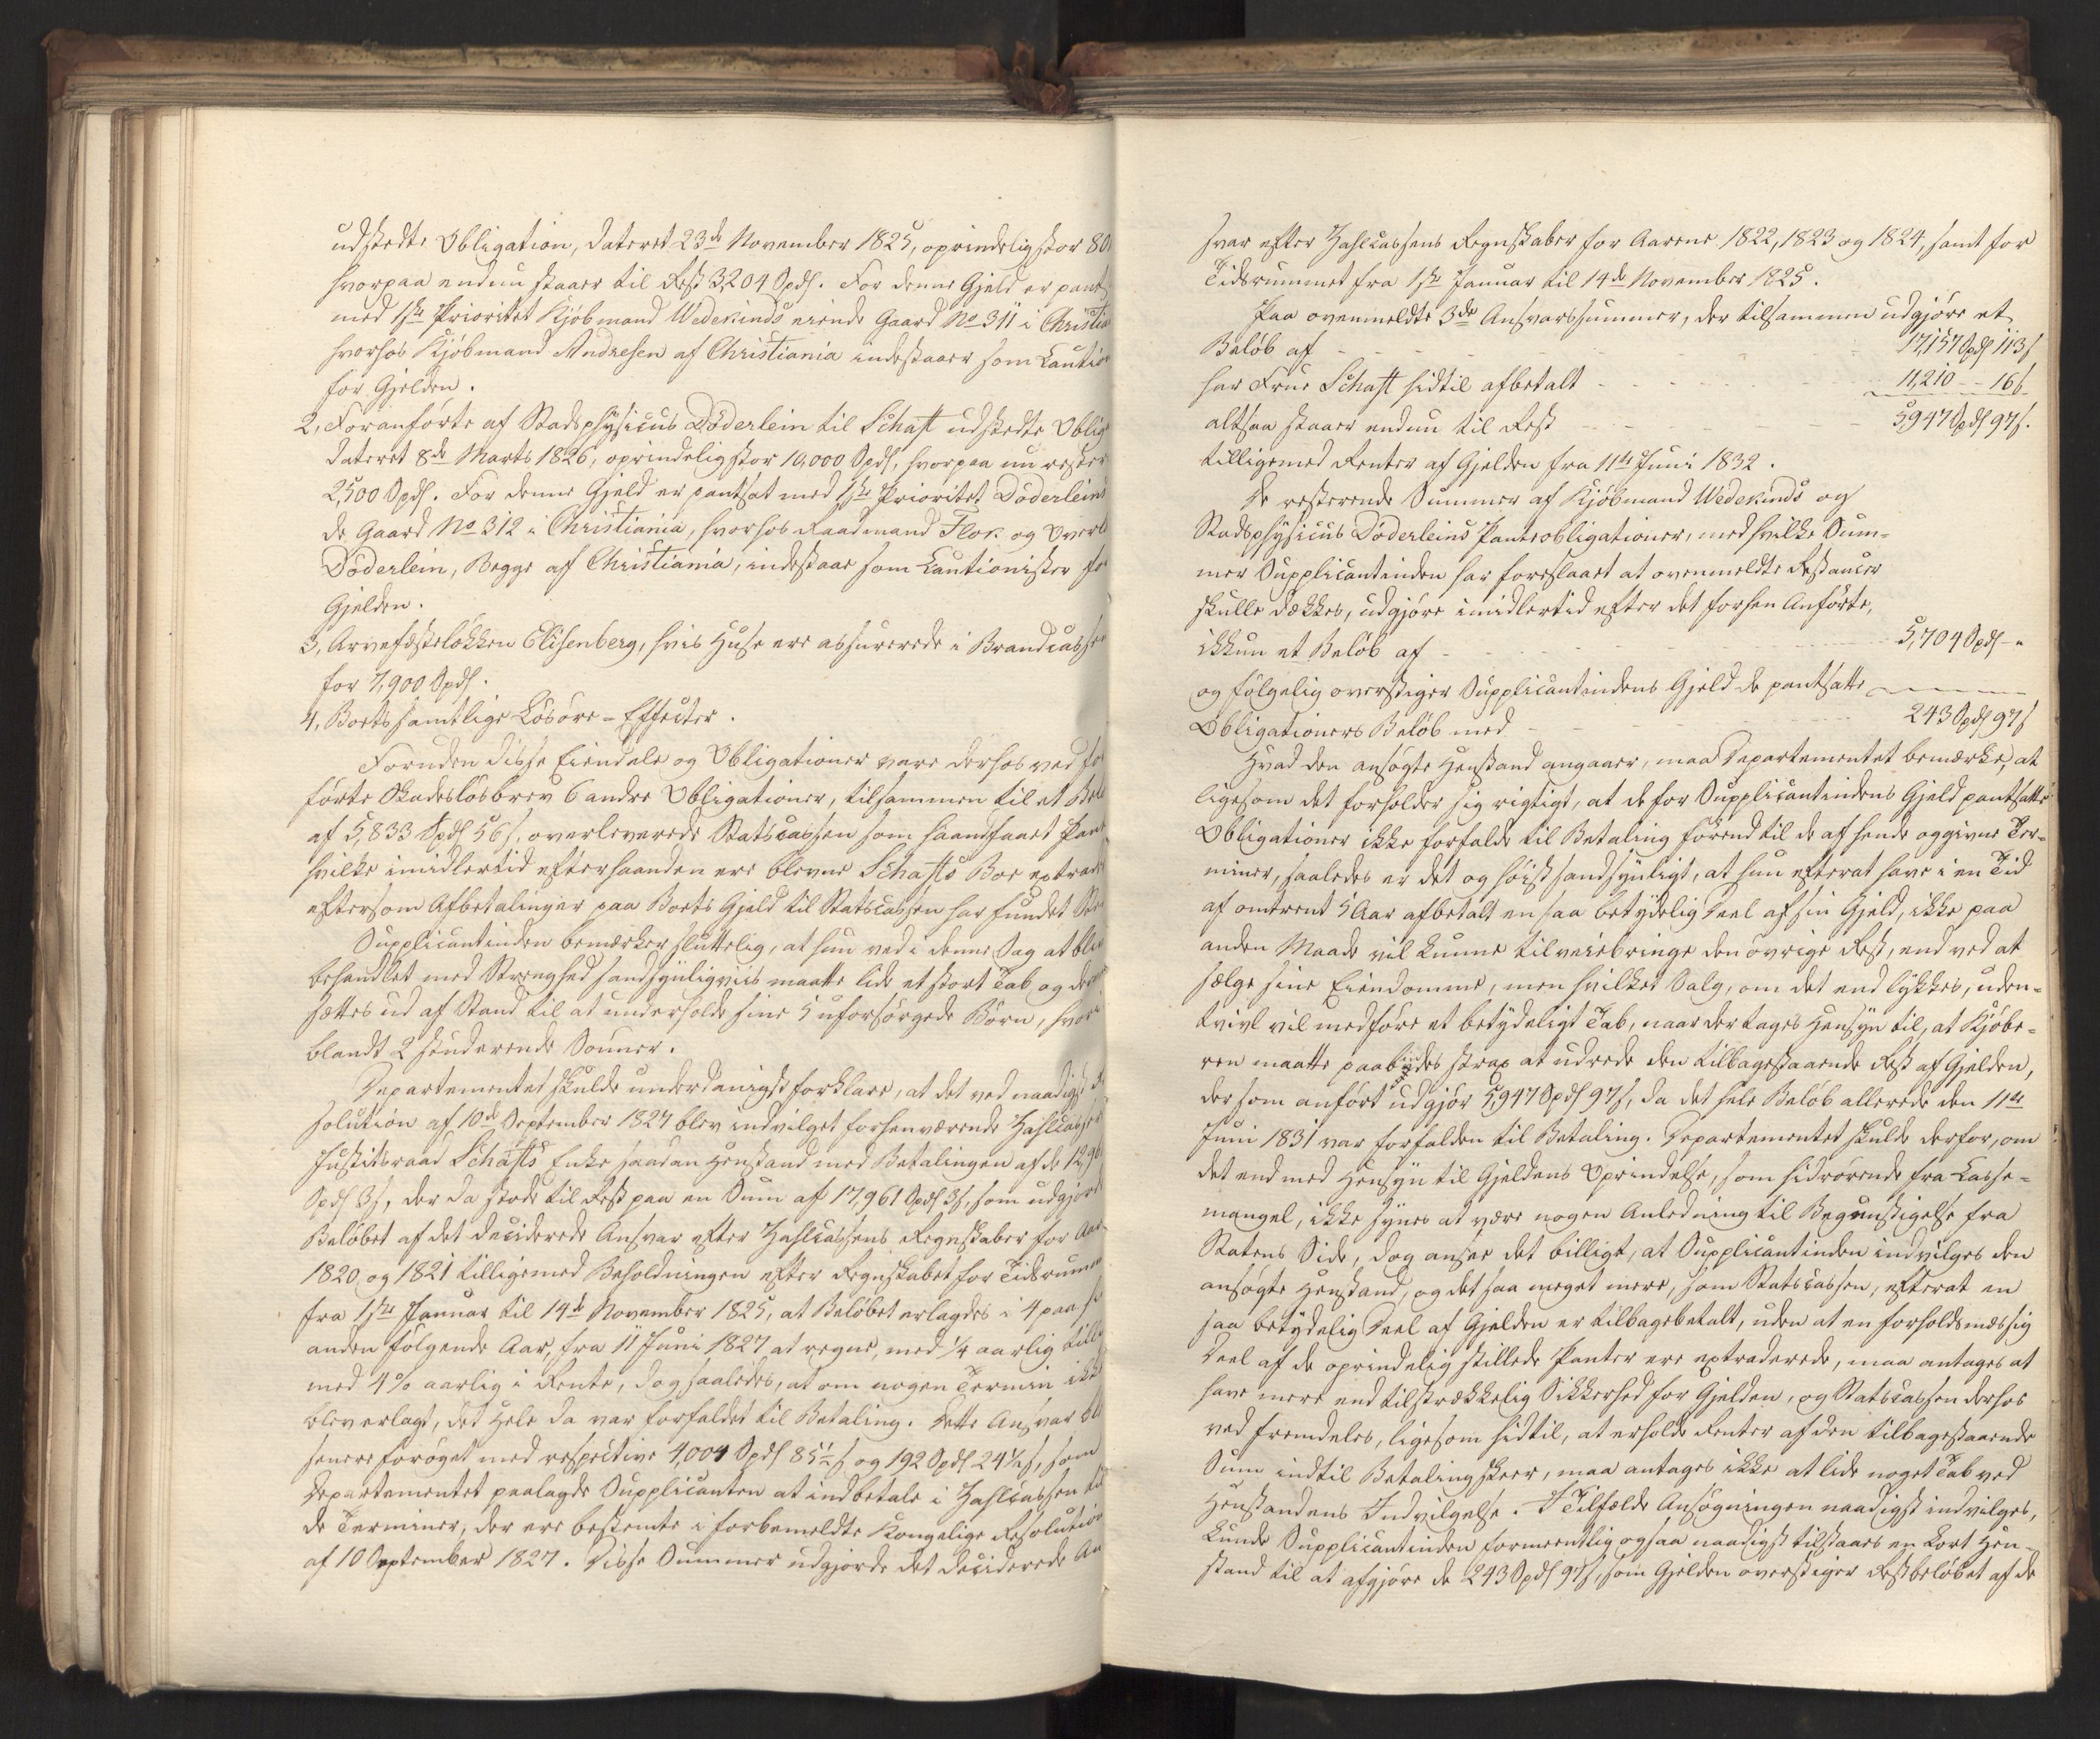 udstedte Obligation, dateret 23de November 1825, oprindelig stor 80
hvorpaa endnu staaer til Rest 3,204 Spd. For denne Gjeld er pant
med 1ste Prioritet Kjøbmand Wedekinds eiende Gaard No 311 i Christia
hvorhos Kjøbmand Andresen af Christiania indestaaer som Cautio
for Gjelden.
2, Foranførte af Stadsphysicus Döderlein til Schaft udstedte Oblig
dateret 8de Marts 1826, oprindelig stor 10,000 Spd, hvorpaa nu rester
2,500 Spd. For denne Gjeld er pantsat med 1ste Prioritet Döderleins
de Gaard No 312 i Christiania, hvorhos Raadmand Flor og Overl
Döderlein, Begge af Christiania, indestaae som Cautionister for
Gjelden.
3, Arvefæsteløkken Elisenberg, hvis Huse ere assurerede i Brandcassen
for 7,900 Spd.
4, Boets samtlige Løsøre-Effecter.
Foruden disse Eiendele og Obligationer vare derhos ved for
førte Skadesløsbrev 6 andre Obligationer, tilsammen til et Belø
af 5,833 Spd 56 s, overleverede Statscassen som haandfaaet Pant
hvilke imidlertid efterhaanden ere blevne Schafts Boe extrad
eftersom Afbetalinger paa Boets Gjeld til Statscassen har fundet Ste
Supplicantinden bemærker sluttelig, at hun ved i denne Sag at bli
behandlet med Strenghed sandsynligviis maatte lide et stort Tab og der
sættes ud af Stand til at underholde sine 5 uforsørgede Børn, hvori
blandt 2 studerende Sønner.
Departementet skulde underdanigst forklare, at det ved naadigst Re
solution af 10de September 1827 blev indvilget forhenværende Zahlcasse
Justitsraad Schafts Enke saadan Henstand med Betalingen af de 12,96
Spd 3 s, der da stode til Rest paa en Sum af 17,961 Spd 3 s, som udgjorde
Beløbet af det deciderede Ansvar efter Zahlcassens Regnskaber for Aar
1820 og 1821 tilligemed Beholdningen efter Regnskabet for Tidsrummet
fra 1ste Januar til 14de November 1825, at Beløbet erlagdes i 4 paa hi
anden følgende Aar, fra 11 Juni 1827 at regne, med 1/4 aarlig till
med 4 % aarlig i Rente, dog saaledes, at om nogen Termin ikk
blev erlagt, det Hele da var forfaldet til Betaling. Dette Ansvar ble
senere forøget med respective 4,004 Spd 85 1/2 s og 192 Spd 24 1/2 s, som
Departementet paalagde Supplicanten at indbetale i Zahlcassen til
de Terminer, der ere bestemte i forbemeldte Kongelige Resolution
af 10 September 1827. Disse Summer udgjorde det deciderede An
svar efter Zahlcassens Regnskaber for Aarene 1822, 1823 og 1824, samt for
Tidsrummet fra 1ste Januar til 14de November 1825.
Paa ovenmeldte 3de Ansvarssummer, der tilsammen udgjøre et
Beløb af - - - - 17,157 Spd 113 s
har Frue Schaft hidtil afbetalt - - - - 11,210 - - 16 s
altsaa staaer endnu til Rest - - - - 5,947 Spd 97 s.
tilligemed Renter af Gjelden fra 11te Juni 1832.
De resterende Summer af Kjøbmand Wedekinds og
Stadsphysicus Döderleins Panteobligationer, med hvilke Sum-
mer Supplicantinden har foreslaaet at ovenmeldte Restancer
skulle dækkes, udgjøre imidlertid efter det forhen Anførte,
ikkun et Beløb af - - - - 5,704 Spd - "
og følgelig overstiger Supplicantindens Gjeld de pantsatte
Obligationers Beløb med - - - - 243 Spd 97 s
Hvad den ansøgte Henstand angaaer, maa Departementet bemærke, at
ligesom det forholder sig rigtigt, at de for Supplicantindens Gjeld pantsatte
Obligationer ikke forfalde til Betaling førend til de af hende opgivne Ter-
miner, saaledes er det og høist sandsynligt, at hun efterat have i en Tid
af omtrent 5 Aar afbetalt en saa betydelig Deel af sin Gjeld, ikke paa
anden Maade vil kunne tilveiebringe den øvrige Rest, end ved at
sælge sine Eiendomme, men hvilket Salg, om det end lykkes, uden-
tvivl vil medføre et betydeligt Tab, naar der tages Hensyn til, at Kjøbe-
ren maatte paabydes strax at udrede den tilbagestaaende Rest af Gjelden,
der som anført udgjør 5,947 Spd 97 s, da det hele Beløb allerede den 11te
Juni 1831 var forfalden til Betaling. Departementet skulde derfor, om
det end med Hensyn til Gjeldens Oprindelse, som hidrørende fra Casse-
mangel, ikke synes at være nogen Anledning til Begunstigelse fra
Statens Side, dog ansee det billigt, at Supplicantinden indvilges den
ansøgte Henstand, og det saa meget mere, som Statscassen, efterat en
saa betydelig Deel af Gjelden er tilbagebetalt, uden at en forholdsmæssig
Deel af de oprindelig stillede Panter ere extraderede, maa antages at
have mere end tilstrækkelig Sikkerhed for Gjelden, og Statscassen derhos
ved fremdeles, ligesom hidtil, at erholde Renter af den tilbagestaaende
Sum indtil Betaling skeer, maa antages ikke at lide noget Tab ved
Henstandens Indvilgelse. I Tilfælde Ansøgningen naadigst indvilges,
kunde Supplicantinden formeentlig ogsaa naadigst tilstaaes en kort Hen-
stand til at afgjøre de 243 Spd 97 s, som Gjelden overstiger Restbeløbet af de